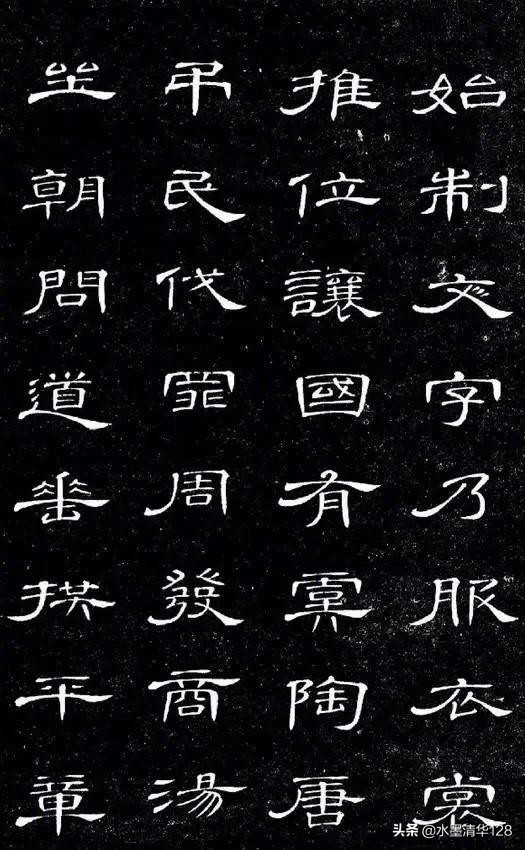 始制文字乃服衣裳
推位讓國有虞陶唐
弔民伐罪周發商湯
坐朝問道垂拱平章
头条 @水墨清华128